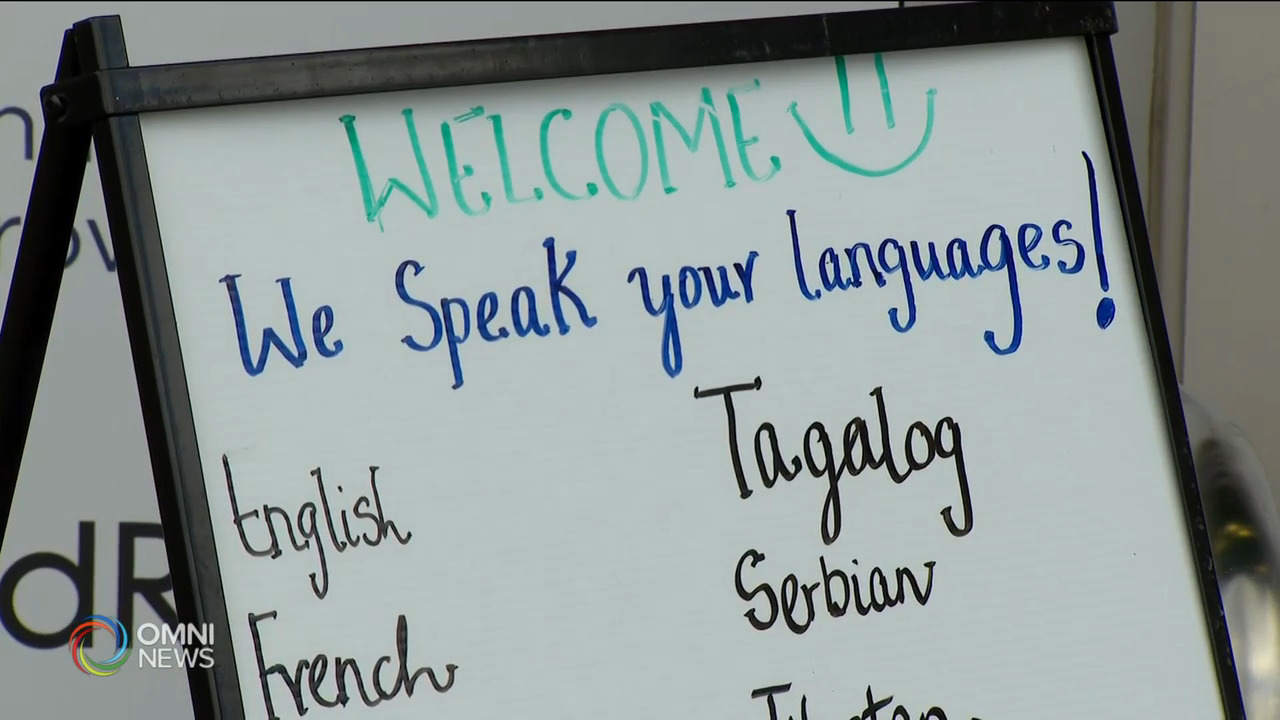 WELCOME
We Speak your languages!
English
French
Tagalog
Serbian
Tibetan
dR
OMNI
NEWS